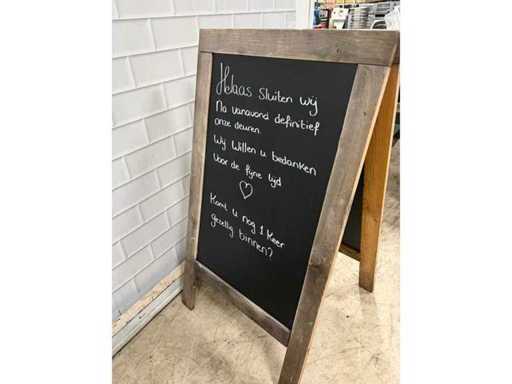 Helaas Sluiten wij
Na vanavond definitief
onze deuren.
Wij Willen u bedanken
Voor de fijne tijd
Komt u nog 1 Keer
gezellig binnen?